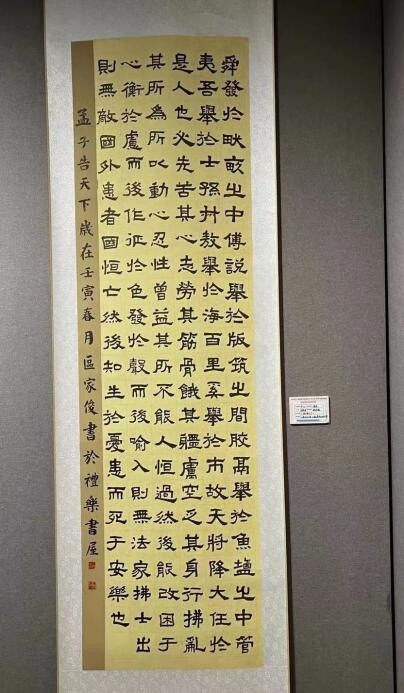 舜發於畎畝之中傅說舉於版筑之間膠鬲舉於魚鹽之中管
夷吾舉於士孫叔敖舉於海百里奚舉於市故天將降大任於
是人也必先苦其心志勞其筋骨餓其體膚空乏其身行拂亂
其所為所以動心忍性曾益其所不能人恒過然後能改困于
心衡於慮而後作征於色發於聲而後喻入則無法家拂士出
則無敵國外患者國恒亡然後知生於憂患而死于安樂也
孟子告天下歲在壬寅春月區家俊書於禮樂書屋